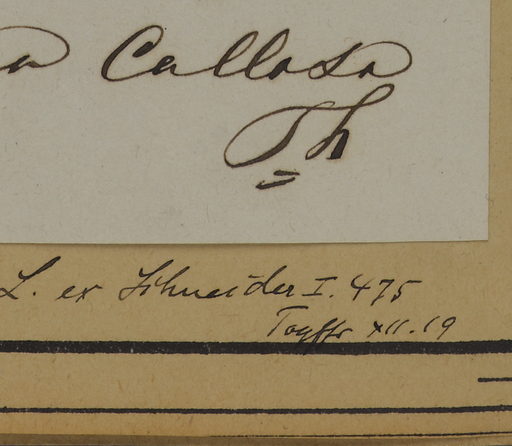 a Callosa
Th
L. ex Schneider I. 475
XII. 19